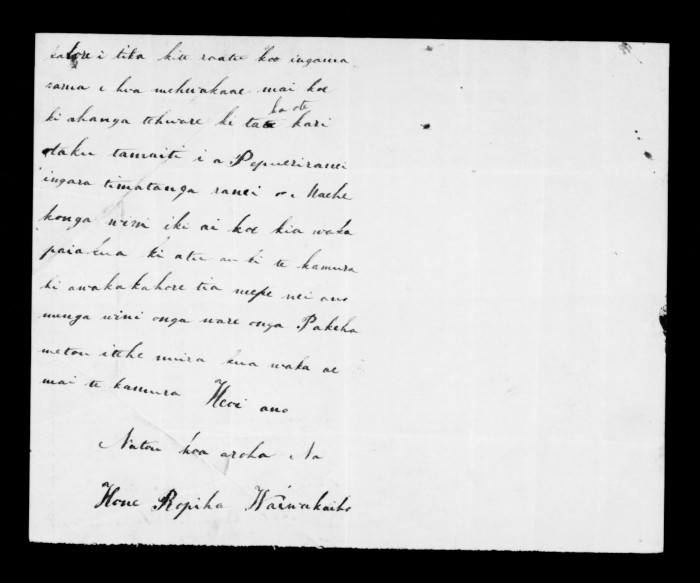 katore i tika kite raatu koo ingama
rama e hua mehwakaae mai koe
ki ahanga tehware ki tate kari
ka ote
taku tamaiti i a Pepueriranei
ingara timatanga ranei o Maehe
konga wini iki ai koe kia waka
paiakua ki atu au ki te kamura
ki awakakahore tia mepe nei ano
nunga wini onga ware onga Pakeha
metou itehe mira kua waka ae
mai te kamura Heoi ano
Natou hoa aroha Na
Hone Ropiha Waiwakaiho